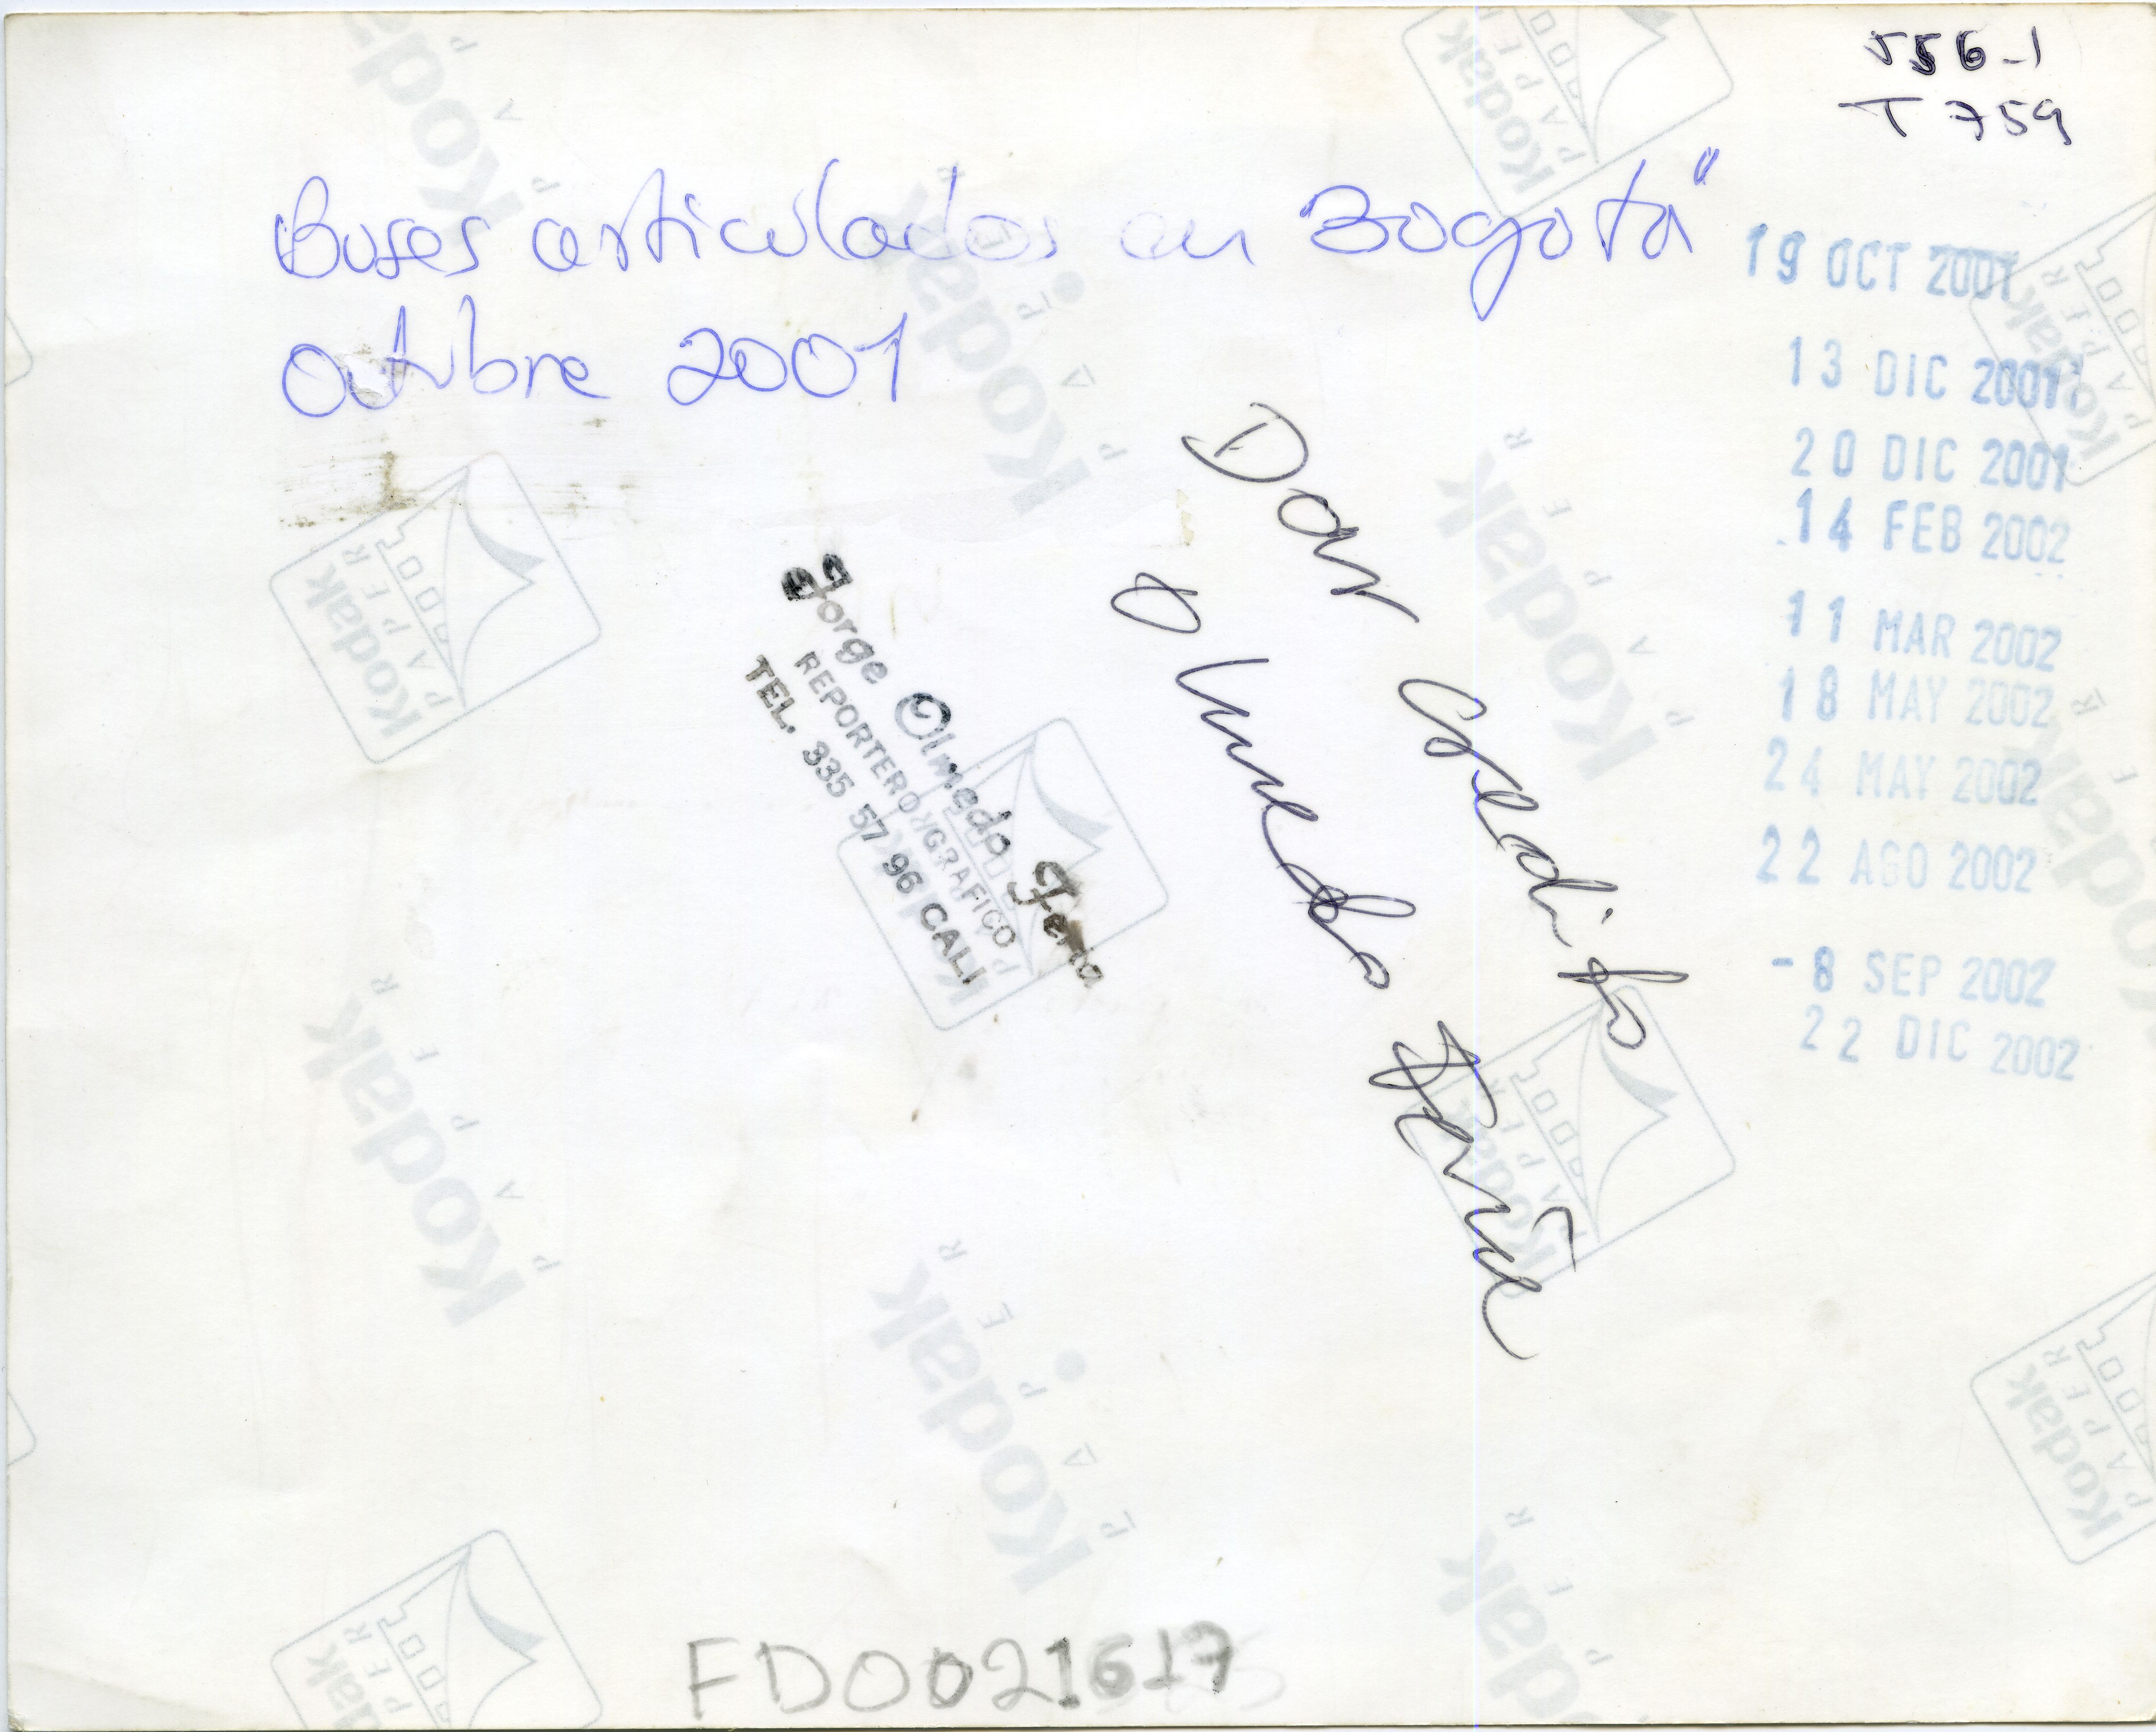 556-1
T 759
Buses articulados en Bogotá"
Octubre 2001
19 OCT 2001
13 DIC 2001
20 DIC 2001
14 FEB 2002
11 MAR 2002
18 MAY 2002
24 MAY 2002
22 AGO 2002
-8 SEP 2002
22 DIC 2002
Dar Credito
Olmedo Feria
Jorge Olmedo Feria
REPORTERO GRAFICO
TEL. 335 57 96 CALI
FD0021617
Kodak
PAPER